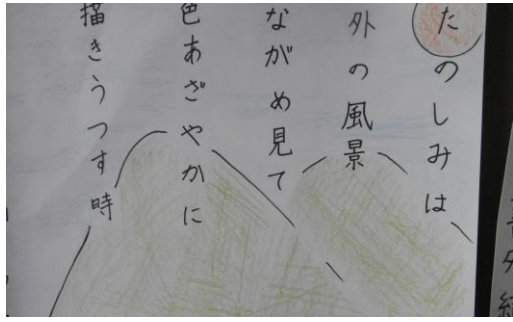 たのしみは
外の風景
ながめ見て
色あざやかに
描きうつす時